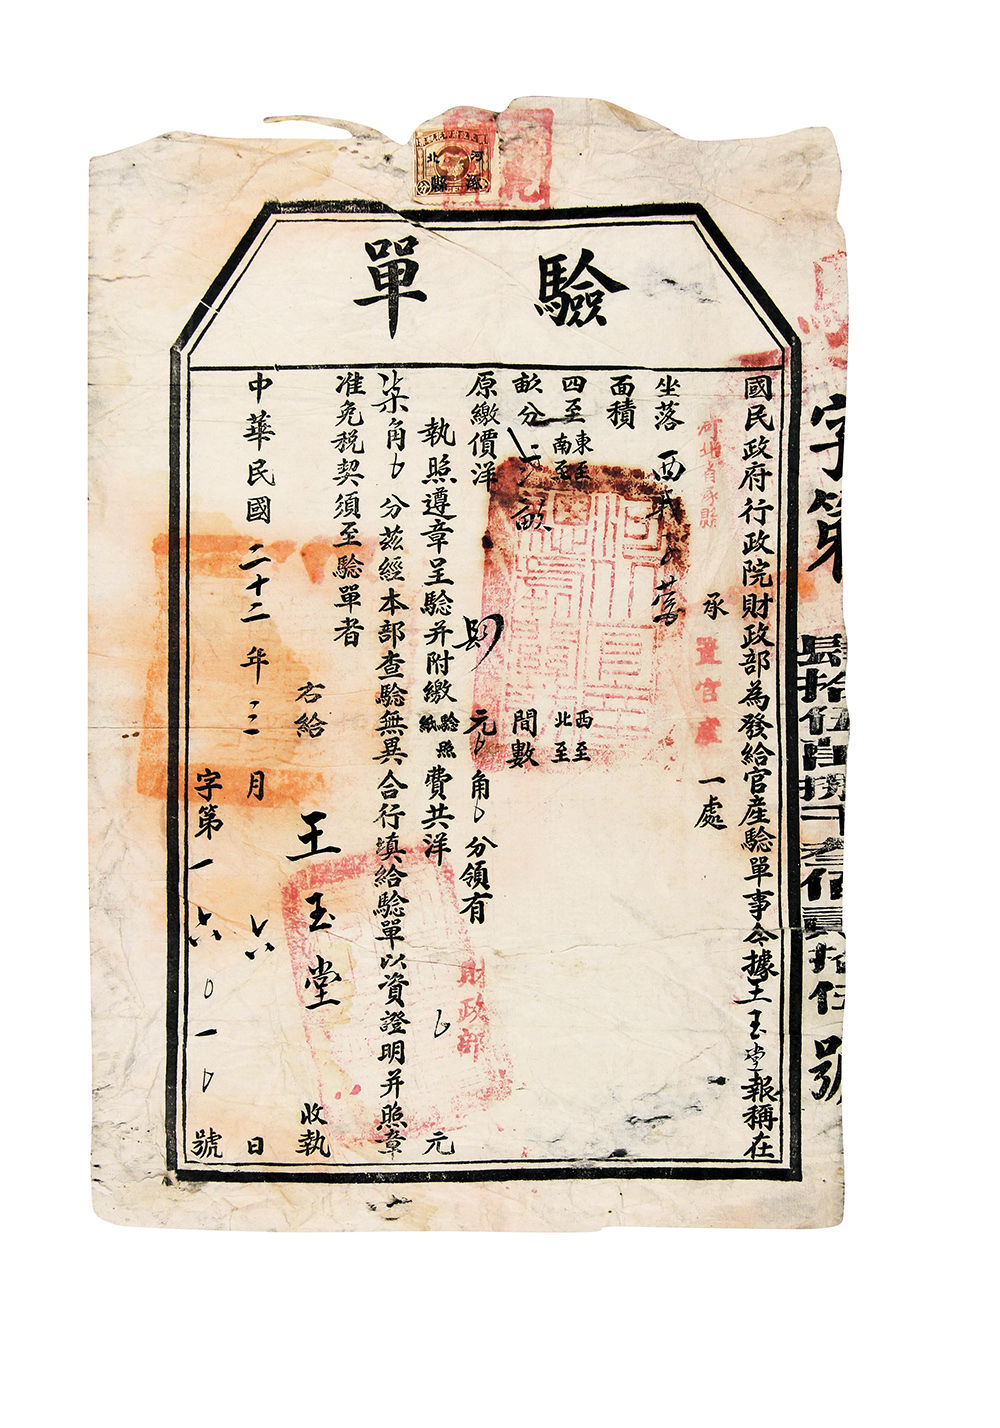 河北
涿縣
驗單
字第
肆拾伍萬捌千叁佰貳拾伍
號
國民政府行政院財政部為發給官產驗單事今據王玉堂報稱在
河北省涿縣
承置官產一處
坐落西
面積
四至東至南至西至北至
畝分畝間數
原繳價洋元角分領有
執照遵章呈驗并附繳驗照紙費共洋元
柒角分茲經本部查驗無異合行填給驗單以資證明并照章
准免稅契須至驗單者
財政部
右給王玉堂收執
中華民國二十二年三月六日
字第一六〇一〇號